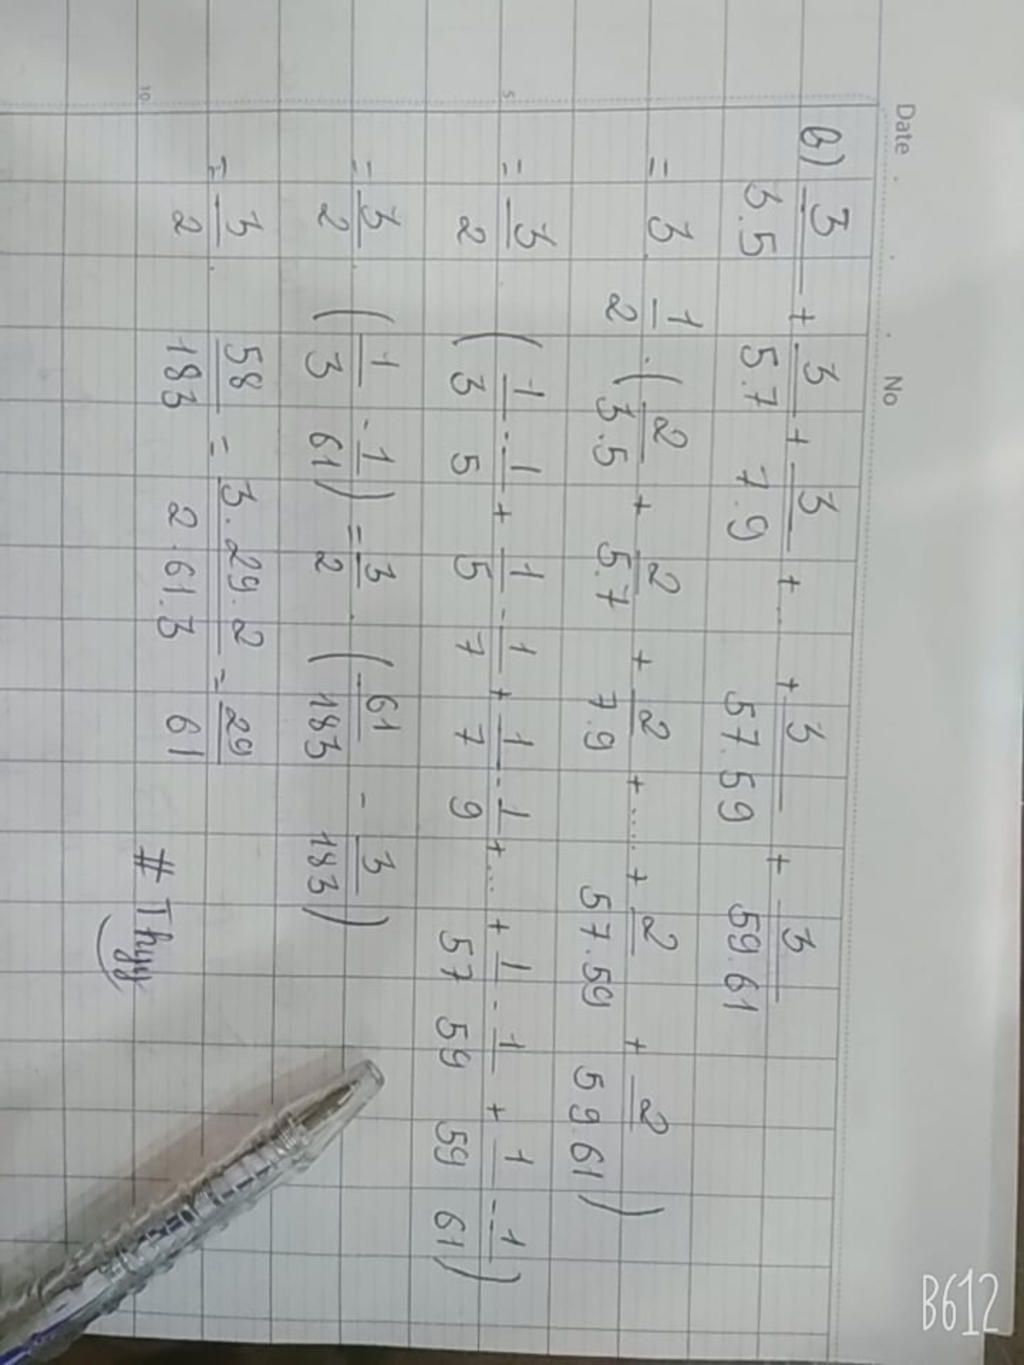 Date . . . No
b) 3/3.5 + 3/5.7 + 3/7.9 + ... + 3/57.59 + 3/59.61
= 3 . 1/2 . (2/3.5 + 2/5.7 + 2/7.9 + ..... + 2/57.59 + 2/59.61)
5
= 3/2 (1/3 - 1/5 + 1/5 - 1/7 + 1/7 - 1/9 + ... + 1/57 - 1/59 + 1/59 - 1/61)
= 3/2 . (1/3 - 1/61) = 3/2 . (61/183 - 3/183)
= 3/2 . 58/183 = 3.29.2/2.61.3 = 29/61
10
# Thyy
B612